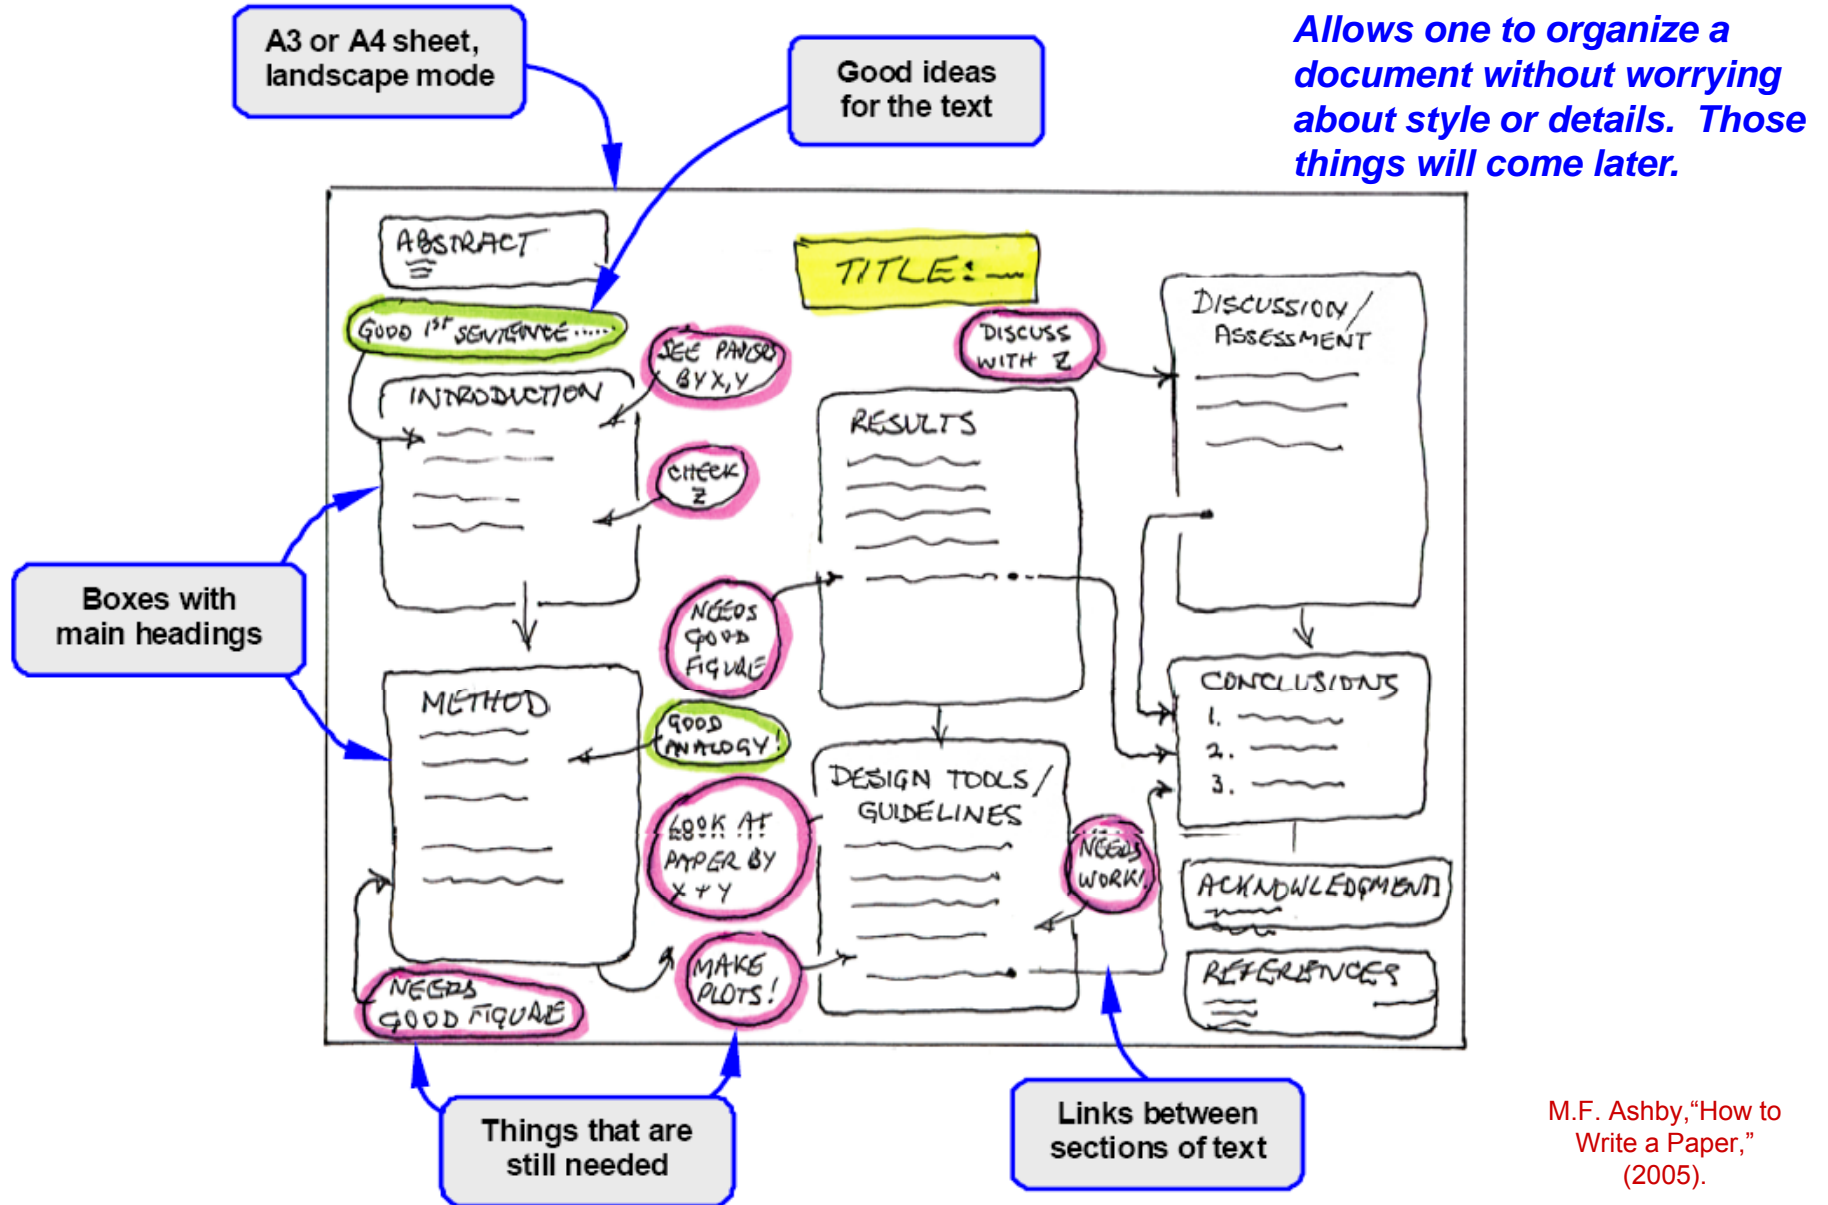 A3 or A4 sheet,
landscape mode
Good ideas
for the text
Allows one to organize a
document without worrying
about style or details.  Those
things will come later.
ABSTRACT
TITLE:
GOOD 1ST SENTENCE .....
SEE PAPERS
BY X, Y
DISCUSS
WITH Z
DISCUSSION/
ASSESSMENT
INTRODUCTION
RESULTS
CHECK
Z
Boxes with
main headings
NEEDS
GOOD
FIGURE
METHOD
GOOD
ANALOGY!
CONCLUSIONS
1.
2.
3.
DESIGN TOOLS/
GUIDELINES
LOOK AT
PAPER BY
X + Y
NEEDS
WORK!
ACKNOWLEDGMENTS
MAKE
PLOTS!
REFERENCES
NEEDS
GOOD FIGURE
Things that are
still needed
Links between
sections of text
M.F. Ashby,“How to
Write a Paper,”
(2005).